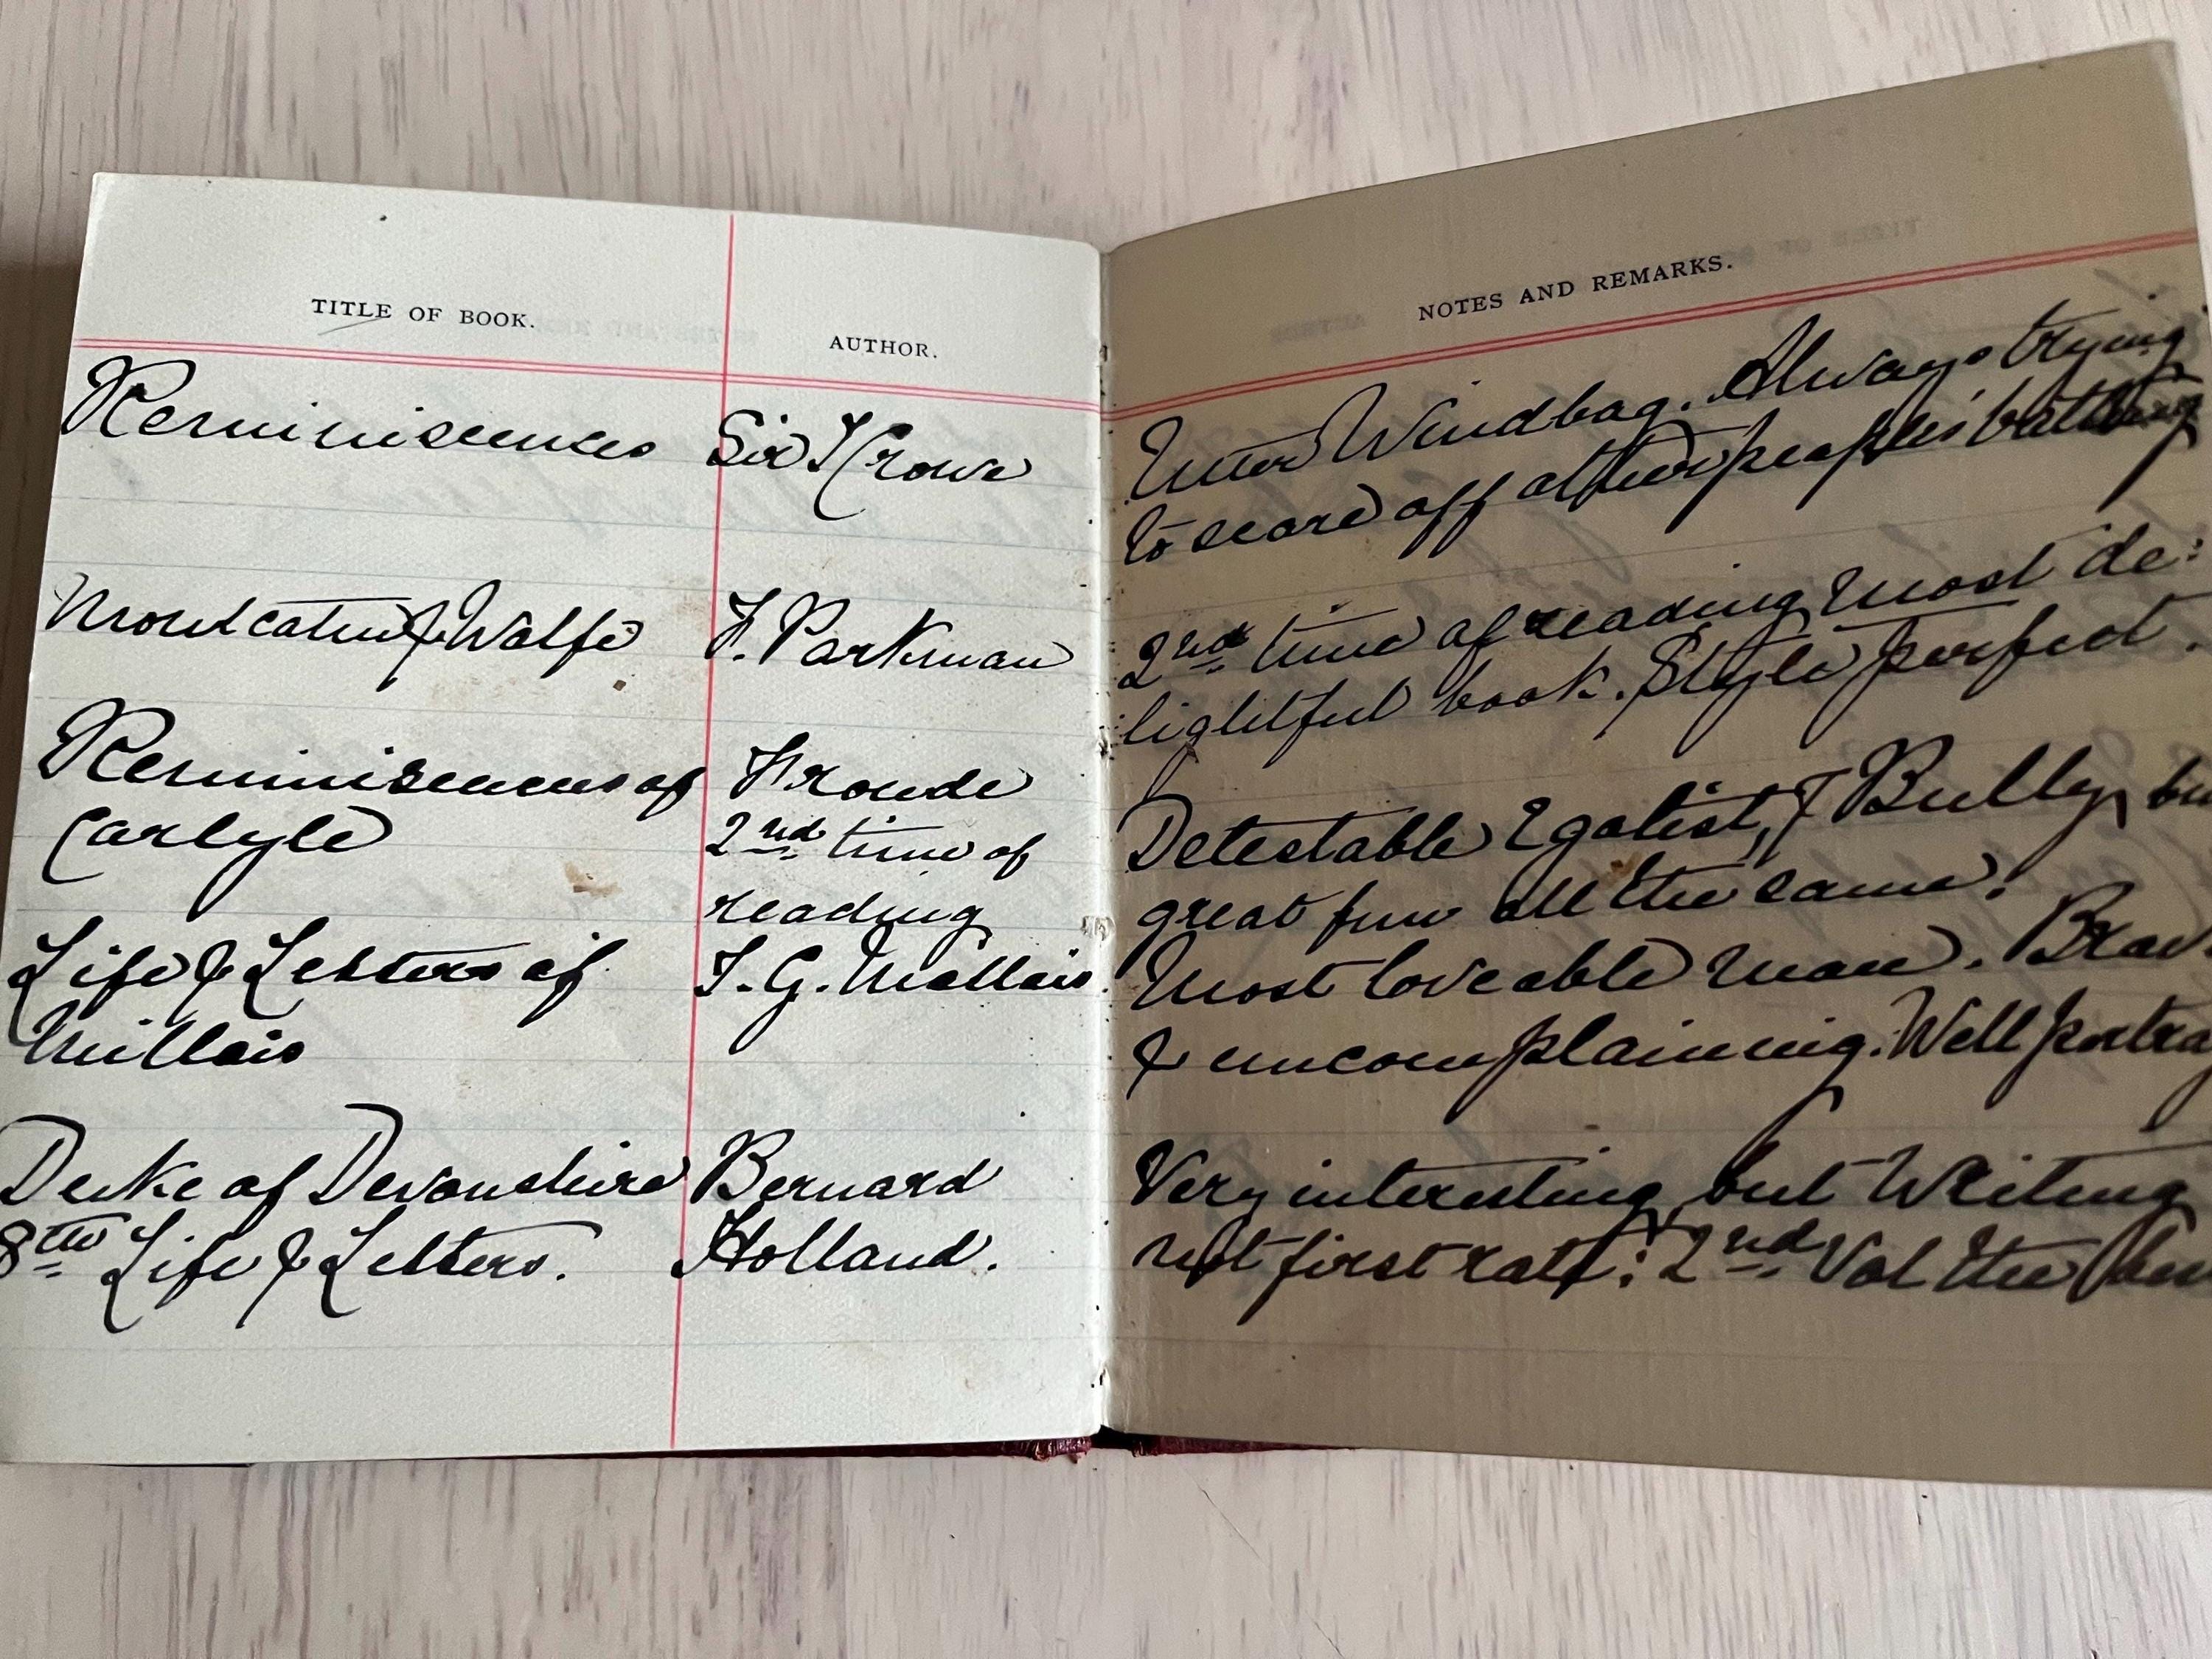 TITLE OF BOOK.
AUTHOR.
Reminiscences
Sir J Crowe
Montcalm & Wolfe
F. Parkman
Reminiscences of
Froude
Carlyle
2nd. time of
reading
Life & Letters of
J. G. Millais.
Millais
Duke of Devonshire
Bernard
8th Life & Letters.
Holland.
NOTES AND REMARKS.
Utter Windbag. Always trying
to score off other people's
2nd. time of reading, most de:
lightful book. Style perfect.
Detestable Egotist, & Bully,
great fun all the same.
Most loveable man.
& uncomplaining. Well
Very interesting, but Writing
not first rate: 2nd. Vol the